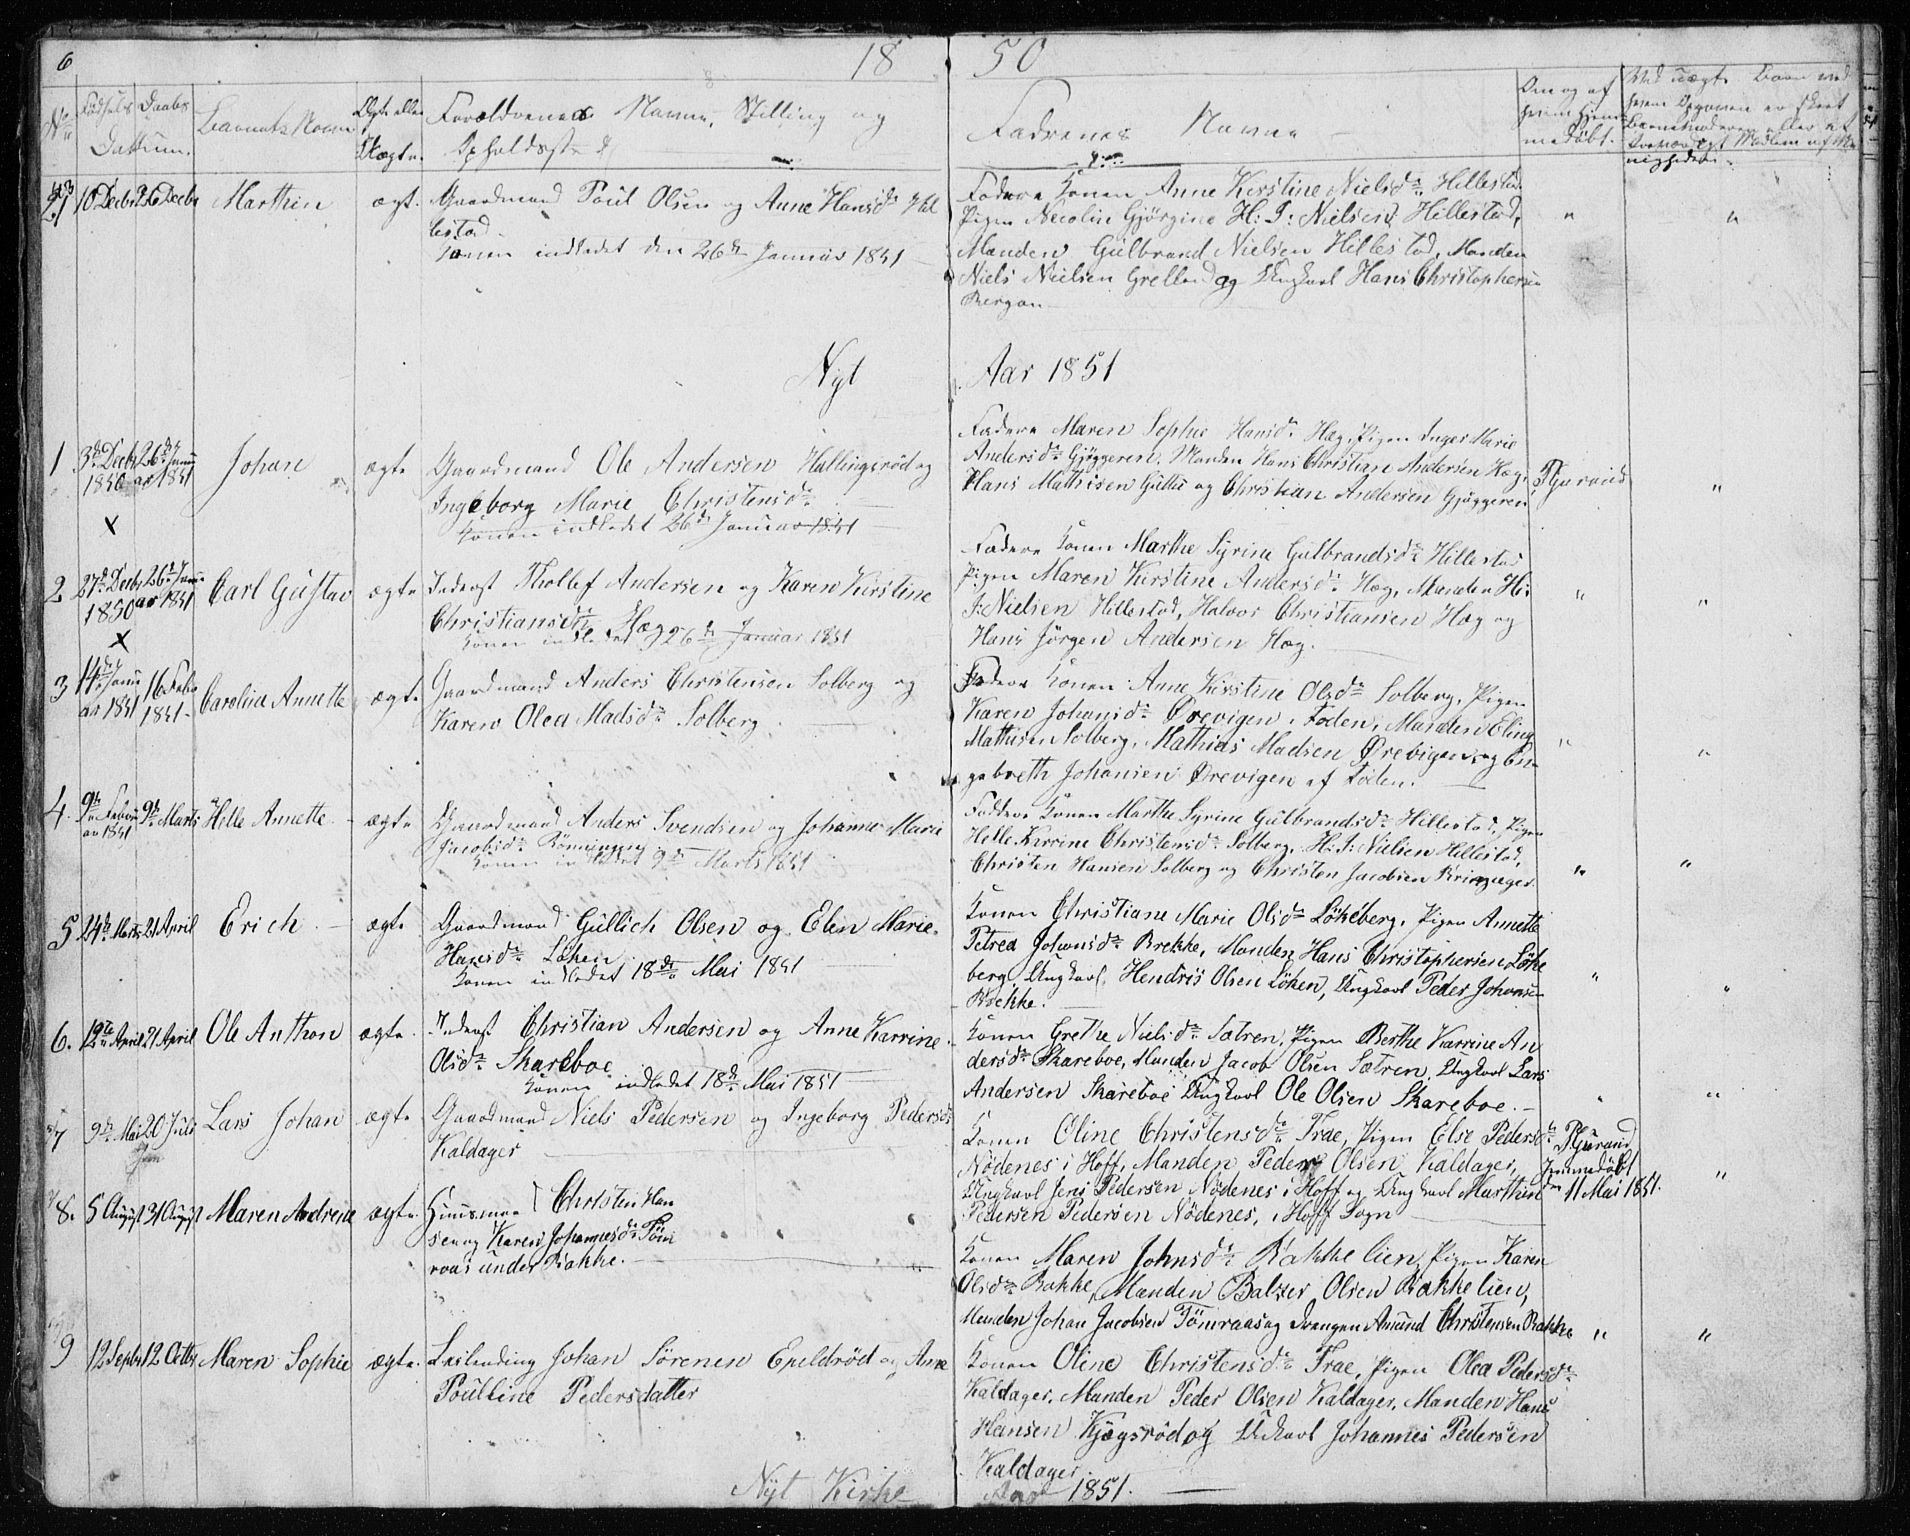 6
18 50
No Fødsels Daabs Barnets Navn Ægte eller Forældrenes Navne, Stilling og Faderenes Navne
Dattum. Uægte. Opholdsste d
21 10 Decbr 26 Decbr Marthin ægt. Gaardmand Poul Olsen og Anne Hansdr Hil
lestad.
Konen indledet den 26de Januar 1851
Faddere Konen Anne Kirstine Nielsdr Hillestad
Pigen Necolin Gjørgine H: J: Nielsen Hillestad,
Manden Gulbrand Nielsen Hillestad, Manden
Niels Nielsen Grelland og Ungkarl Hans Christophersen
Bergan
Nyt Aar 1851
1 3de Decbr 26de Janu Johan ægte Gaardmand Ole Andersen Hallingsrød og
1850 ar 1851 Ingeborg Marie Christensdr
Konen indledet 26de Januar 1851
Faddere Maren Sophie Hansdr Høg, Pigen Inger Marie
Andersdr Gjøggeren, Manden Hans Christian Andersen Høg,
Hans Mathisen Guttu og Christian Andersen Gjøggeren
2 27de Decbr 26de Janu Carl Gustav ægte Inderst Thollef Andersen og Karen Kirstine
1850 ar 1851 Christiansdr Høg
Konen indledet 26de Januar 1851
Faddere Konen Marthe Syrine Gulbrandsdr Hillestad
Pigen Maren Kirstine Andersdr Høg, Manden H:
J: Nielsen Hillestad, Halvor Christiansen Høg og
Hans Jørgen Andersen Høg.
3 14de Janu 16 Febr Caroline Annette ægte Gaardmand Anders Christensen Solberg og
ar 1851 1851 Karen Olea Madsdr Solberg
Faddere Konen Anne Kirstine Olsdr Solberg, Pigen
Karen Johansdr Ørevigen i Foden, Manden Eling
Mathisen Solberg, Mathias Madsen Ørevigen, og En-
gebreth Johansen Ørevigen af Foden.
4. 9de Febru 9de Marts Helle Annette ægte Gaardmand Anders Svendsen og Johanne Marie
ar 1851 Jacobsdr Rønningen
Konen indledet 9de Marts 1851
Faddere Konen Marthe Syrine Gulbrandsdr Hillestad, Pigen
Helle Kirrine Christensdr Solberg, H: J: Nielsen Hillestad,
Christen Hansen Solberg og Christen Jacobsen Kringager
5 24de Marts 21 April Erich ægte Gaardmand Gullich Olsen og Elen Marie
Hansdr Løken
Konen indledet 18de Mai 1851
Konen Christiane Marie Olsdr Løkeberg, Pigen Annette
Petrea Johansdr Brekke, Manden Hans Christophersen Løke
berg, Ungkarl Hendris Olsen Løken, Ungkarl Peder Johansen
Brekke.
6. 12te April 21 April Ole Anthon ægte Inderst Christian Andersen og Anne Karrine
Olsdr Skareboe
Konen indledet 18de Mai 1851
Konen Grethe Nielsdr Sætren, Pigen Berthe Karrine An
dersdr Skareboe, Manden Jacob Olsen Sætren, Ungkarl Lars
Andersen Skareboe Ungkarl Ole Olsen Skareboe.
7 9de Mai 20 Juli Lars Johan ægte Gaardmand Niels Pedersen og Ingeborg Pedersdr
Kaldager
Konen Oline Christensdr Træ, Pigen Else Pedersdr
Nødenes i Hoff, Manden Peder Olsen Kaldager,
Ungkarl Jens Pedersen Nødenes i Hoff og Ungkarl Marthin
Pedersen Pedersen Nødenes, i Hoff Sogn
hiemmedøbt
11 Mai 1851.
8. 5 August 31 August Maren Andrene ægte. Huusmand Christen Han
sen og Karen Johannesdr Tøm
raas under Bakke.
Konen Maren Johnsdr Bakkelien, Pigen Karen
Olsdr Bakke, Manden Balzer Olsen Bakkelien,
Manden Johan Jacobsen Tømraas og Drengen Amund Christensen Bakke
9 12 Septbr 12 Octbr Maren Sophie ægte Losilending Johan Sørensen Epeldrød og Anne
Poulline Pedersdatter
Konen Oline Christensdr Træ, Pigen Olea Pedersdr
Kaldager, Manden Peder Olsen Kaldager, Manden Hans
Hansen Kjøgsrød og Ungkarl Johannes Pedersen
Kaldager
Nyt Kirke Aar 1851.